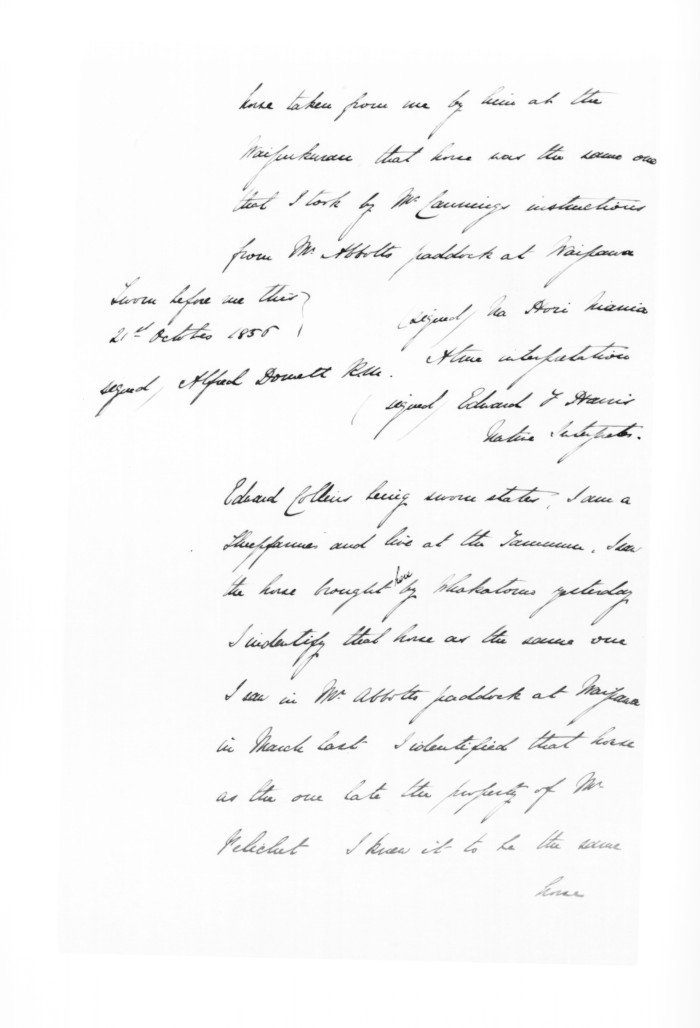 horse taken from me by him at the
Waipukurau that horse was the same one
that I took by Mr Cannings instructions
from Mr Abbotts paddock at Waipawa
Sworn before me this
21st October 1856
(signed) Na Hori Niania
signed, Alfred Domett R.M. A true interpretation
(signed) Edward F Harris
Native Interpreter.
Edward Collins being sworn states, I am a
Sheepfarmer and live at the Tamumu, I saw
the horse brought here by Whakatomo yesterday
I indentify that horse as the same one
I saw in Mr Abbotts paddock at Waipawa
in March last I identified that horse
as the one late the property of Mr
Pelichet I knew it to be the same
horse